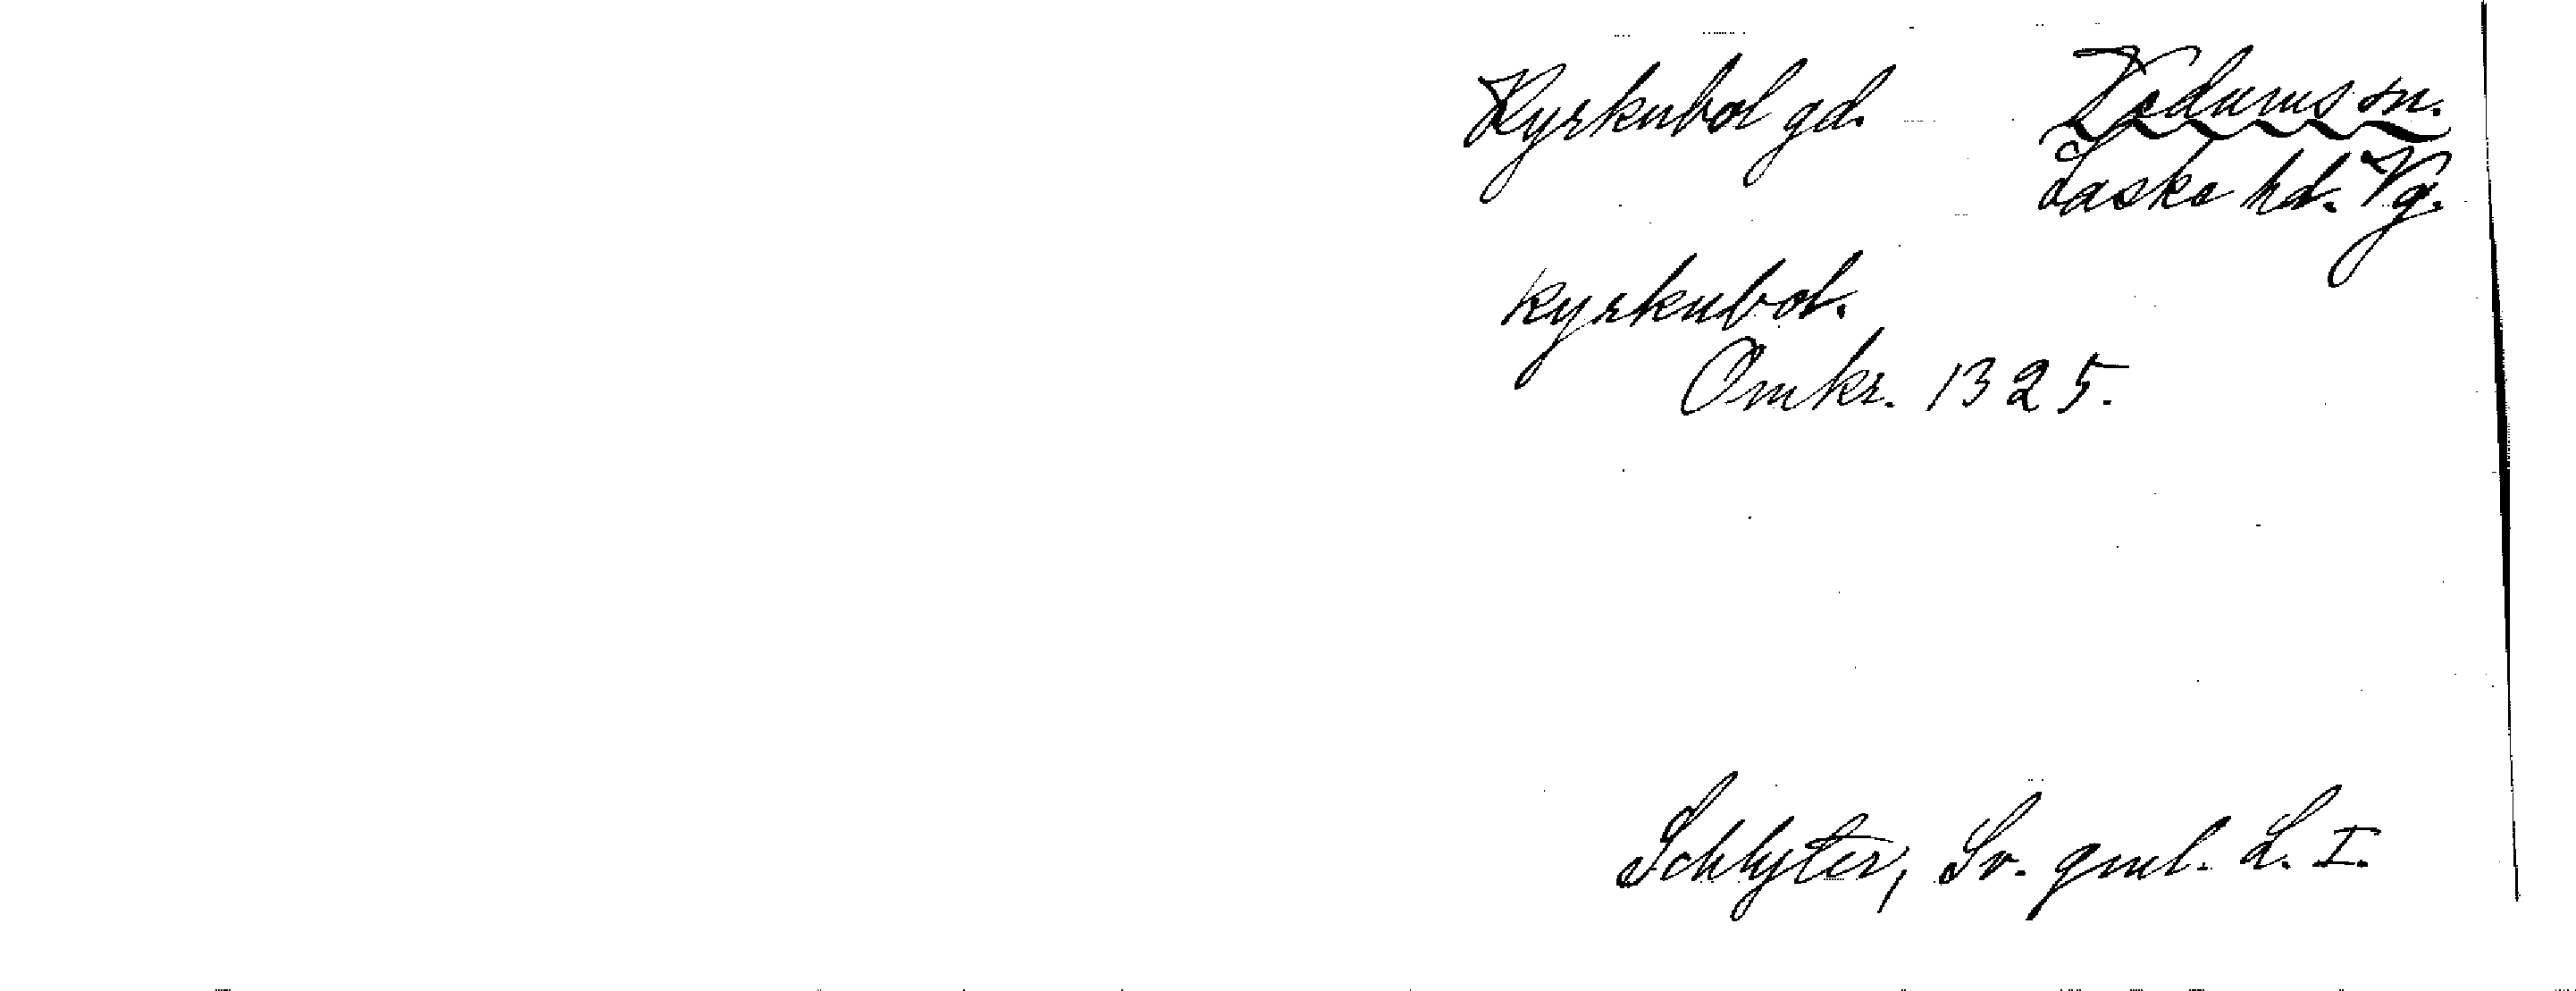 Kyrkubol gd. Vedums sn.
Laske hd. Vg.
kyrkubol.
Omkr. 1325.
Schlyter, Sv. gml. L. I.